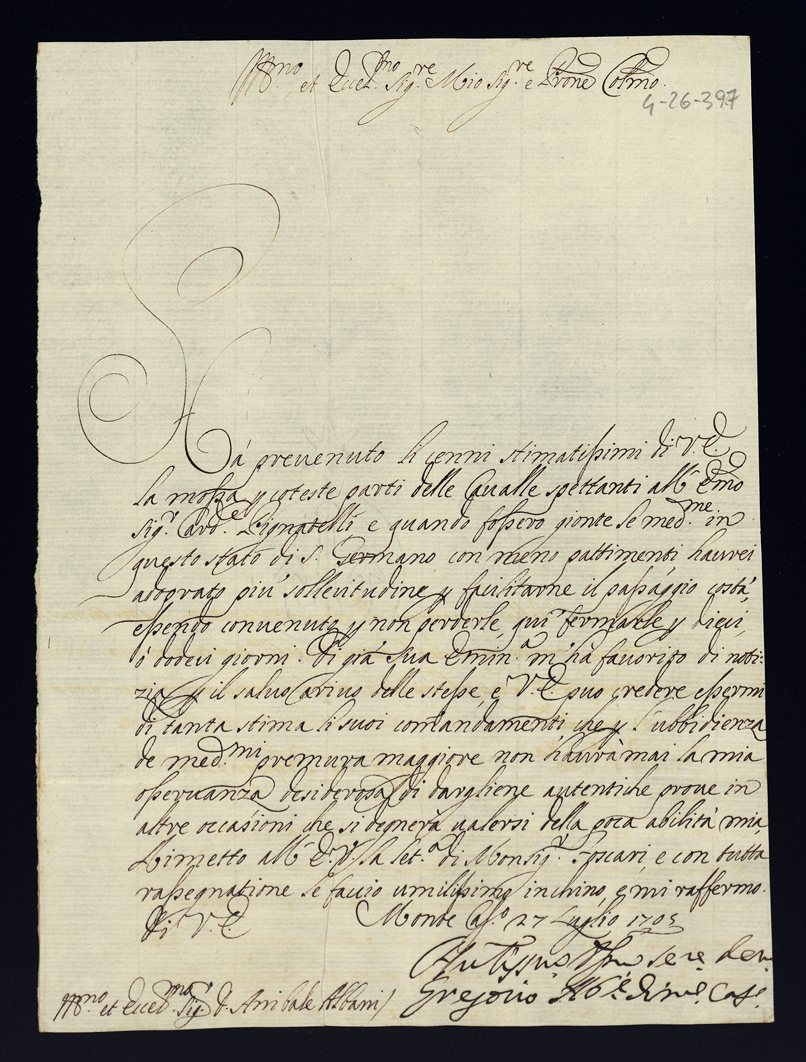 Ill.mo et Ecc.mo Sig.re Mio Sig.re e P.rone Col.mo
4-26-397
Há preuenuto li cenni stimatissimi di V.E.
la mossa p coteste parti delle Caualle spettanti all' Em.o
Sig.r Card.le Pignatelli e quando fossero gionte le med.me in
questo stato di S. Germano con meno pattimenti haurei
adoprato piú sollecitudine p facilitarne il passaggio costá,
essendo conuenuto p non perderle, qui fermarle p dieci,
ó dodeci giorni. Di giá Sua Emin.a m' há fauorito di noti:
zia p il saluo arriuo delle stesse, e V.E. puo credere essermi
di tanta stima li suoi comandamenti, che p l' ubbidienza
de med.mi premura maggiore non haurá mai la mia
osseruanza desiderosa di dargliene autentiche proue in
altre occasioni che si degnerá ualersi della poca abilitá mia
Rimetto all' E.V. la let.a di Monsig.r Foscari, e con tutta
rassegnatione le faccio umilissimo inchino, e mi raffermo.
Di V.E. Monte Cas.o 27 Luglio 1705
Gregorio Ab.e di M.e Cas.o
Ill.mo et Ecc.mo Sig.r D. Annibale Albani